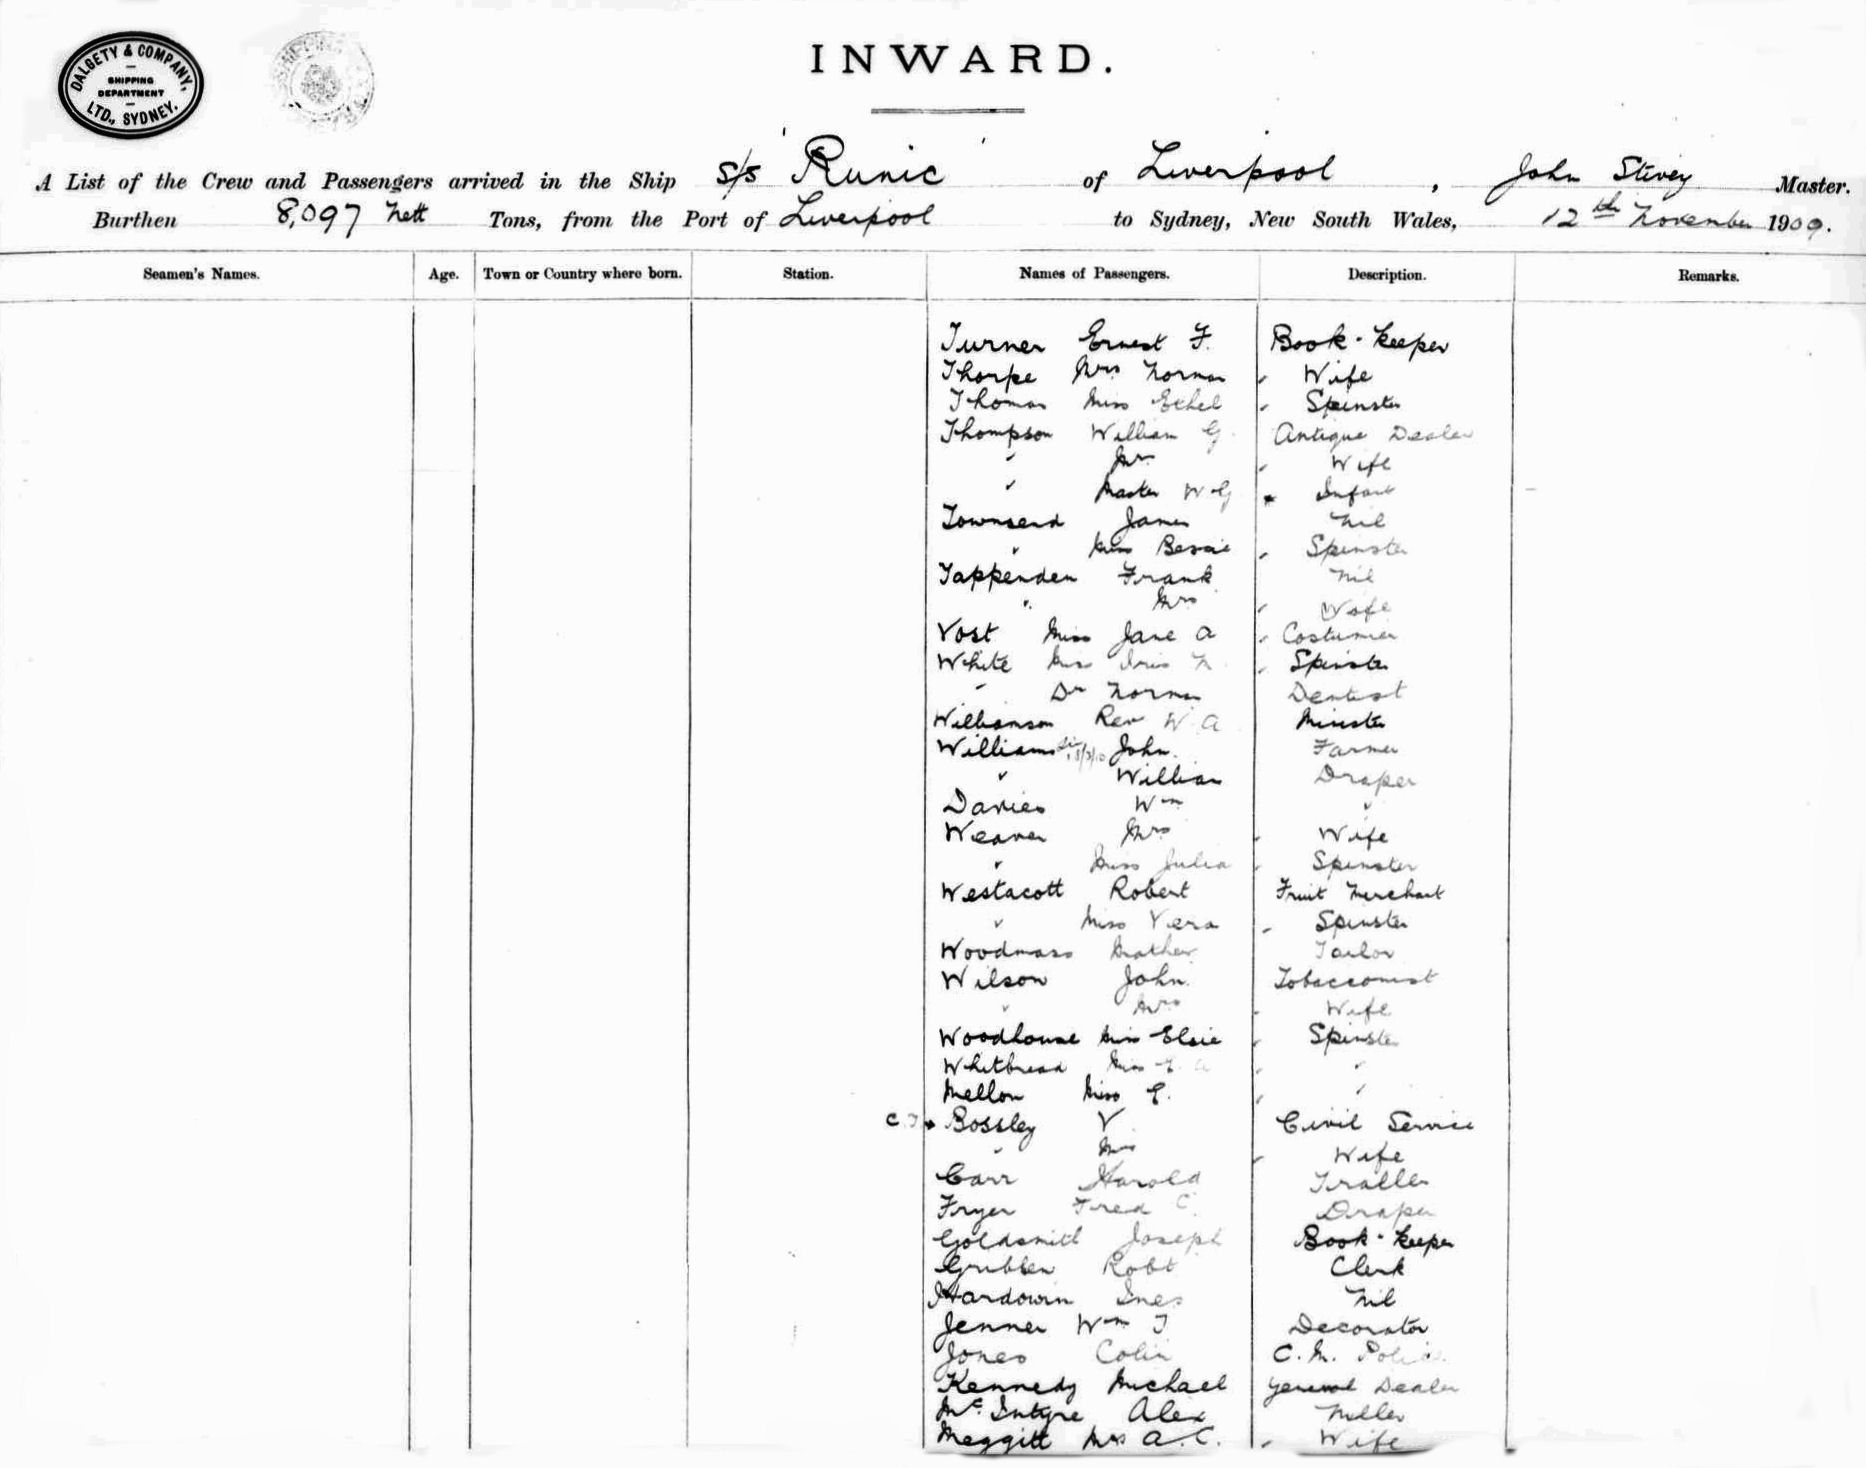 DALGETY & COMPANY,
SHIPPING
DEPARTMENT
LTD., SYDNEY.
INWARD.
A List of the Crew and Passengers arrived in the Ship S/S 'Runic' of Liverpool, John Stivey Master.
Burthen 8,097 Nett Tons, from the Port of Liverpool to Sydney, New South Wales, 12th November 1909.
Seamen's Names. Age. Town or Country where born. Station. Names of Passengers. Description. Remarks.
Turner Ernest F. Book-Keeper
Thorpe Mrs Norman " Wife
Thomas Miss Ethel " Spinster
Thompson William G. Antique Dealer
" Mrs " Wife
" Master W G " Infant
Townsend James Nil
" Miss Bessie " Spinster
Tappenden Frank Nil
" Mrs " Wife
Vost Miss Jane A " Costumier
White Miss Iris N. " Spinster
" Dr Norman Dentist
Williamson Rev W. A Minister
Williams John. Farmer
" William Draper
Davies Wm "
Weaver Mrs " Wife
" Miss Julia " Spinster
Westacott Robert Fruit Merchant
" Miss Vera " Spinster
Woodmass Mather Tailor
Wilson John. Tobacconist
" Mrs " Wife
Woodhouse Miss Elsie " Spinster
Whitbread Miss E. A " "
Mellon Miss E. " "
C.T. Bossley V Civil Service
" Mrs " Wife
Carr Harold Traller
Fryer Fred C. Draper
Goldsmith Joseph Book-Keeper
Gribben Robt Clerk
Hardowin Ines Nil
Jenner Wm T Decorator
Jones Colin C. M. Police
Kennedy Michael General Dealer
McIntyre Alex Miller
Meggitt Mrs A. C. " Wife